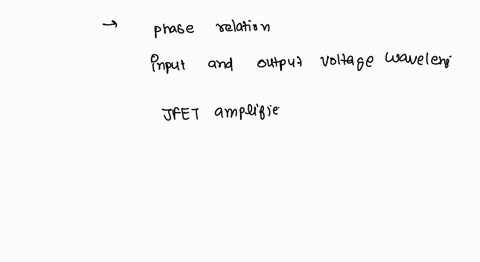 → phase relation
input and output voltage wavelen
JFET amplifie